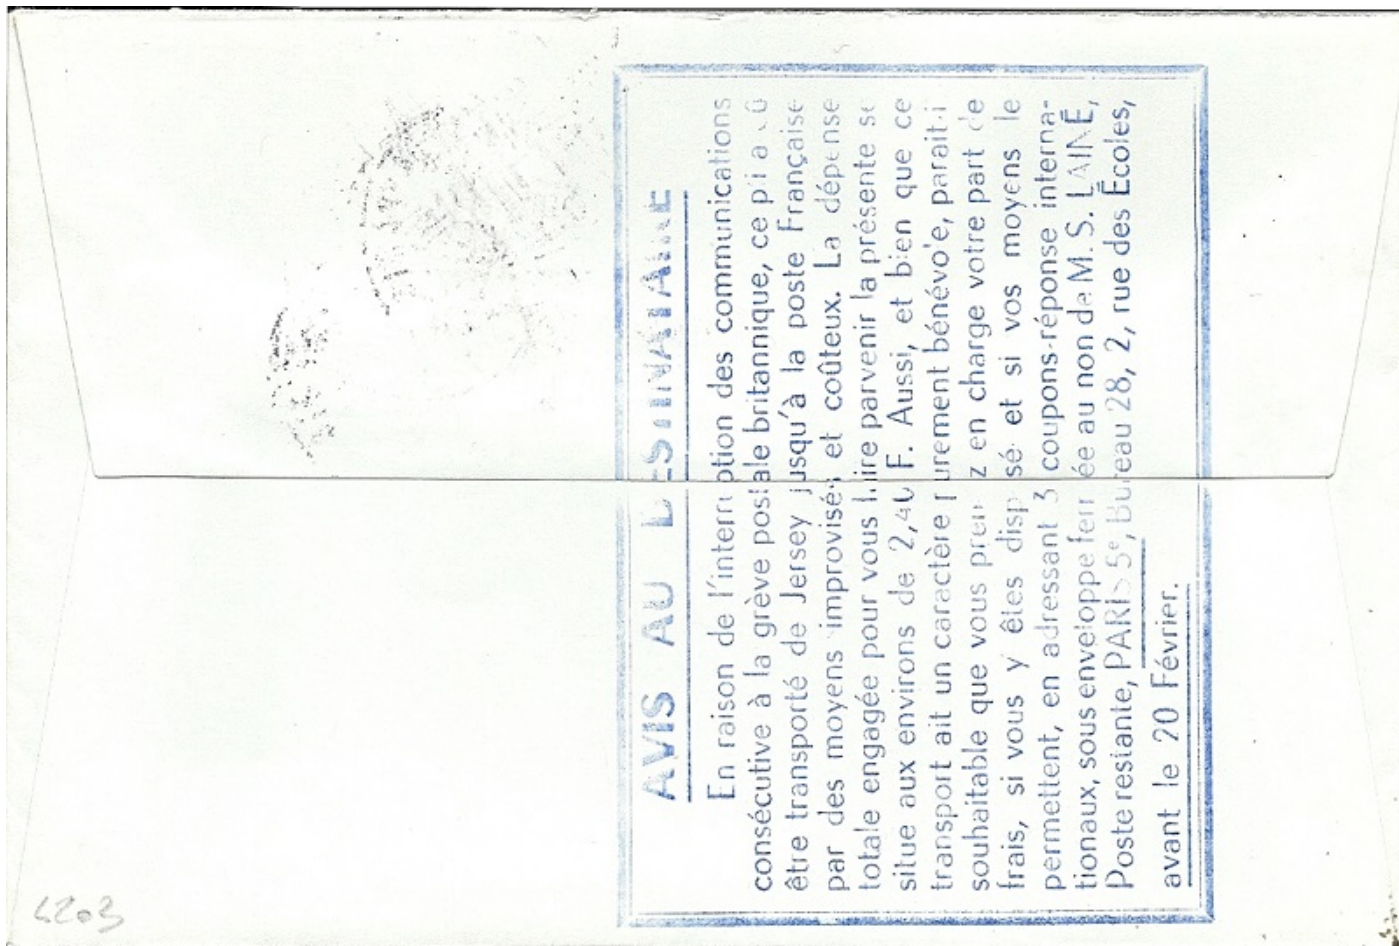 AVIS AU DESTINATAIRE
En raison de l'interruption des communications
consécutive à la grève postale britannique, ce pli a dû
être transporté de Jersey jusqu'à la poste Française
par des moyens improvisés et coûteux. La dépense
totale engagée pour vous faire parvenir la présente se
situe aux environs de 2,40 F. Aussi, et bien que ce
transport ait un caractère purement bénévole, parait-il
souhaitable que vous preniez en charge votre part de
frais, si vous y êtes disposé et si vos moyens le
permettent, en adressant 3 coupons-réponse interna-
tionaux, sous enveloppe fermée au non de M. S. LAINÉ,
Poste restante, PARIS 5e, Bureau 28, 2, rue des Écoles,
avant le 20 Février.